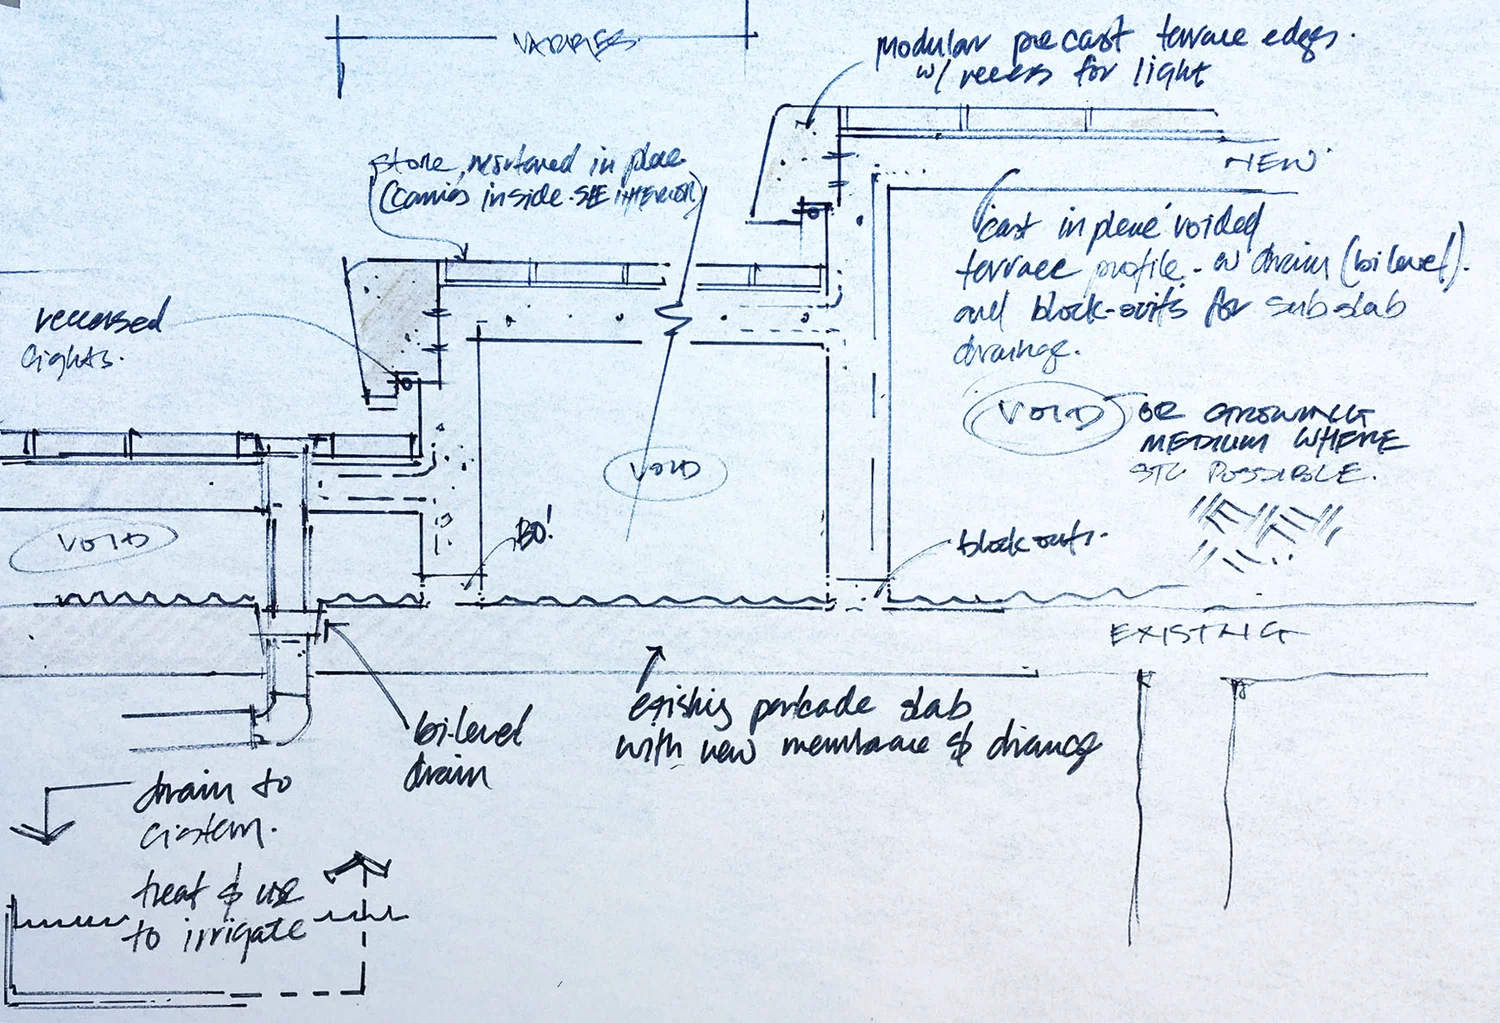 VARIES
modular precast terrace edges.
w/ recess for light
stone, mortared in place
(carries inside. SEE INTERIOR)
NEW
cast in place voided
terrace profile. w/ drain (bilevel).
and block-outs for subslab
drainage.
recessed
lights.
VOID OR GROWING
MEDIUM WHERE
STC POSSIBLE.
VOID
VOID
BO!
blockouts.
EXISTING
existing parkade slab
with new membrane & drainage
bi-level
drain
drain to
cistern.
treat & use
to irrigate